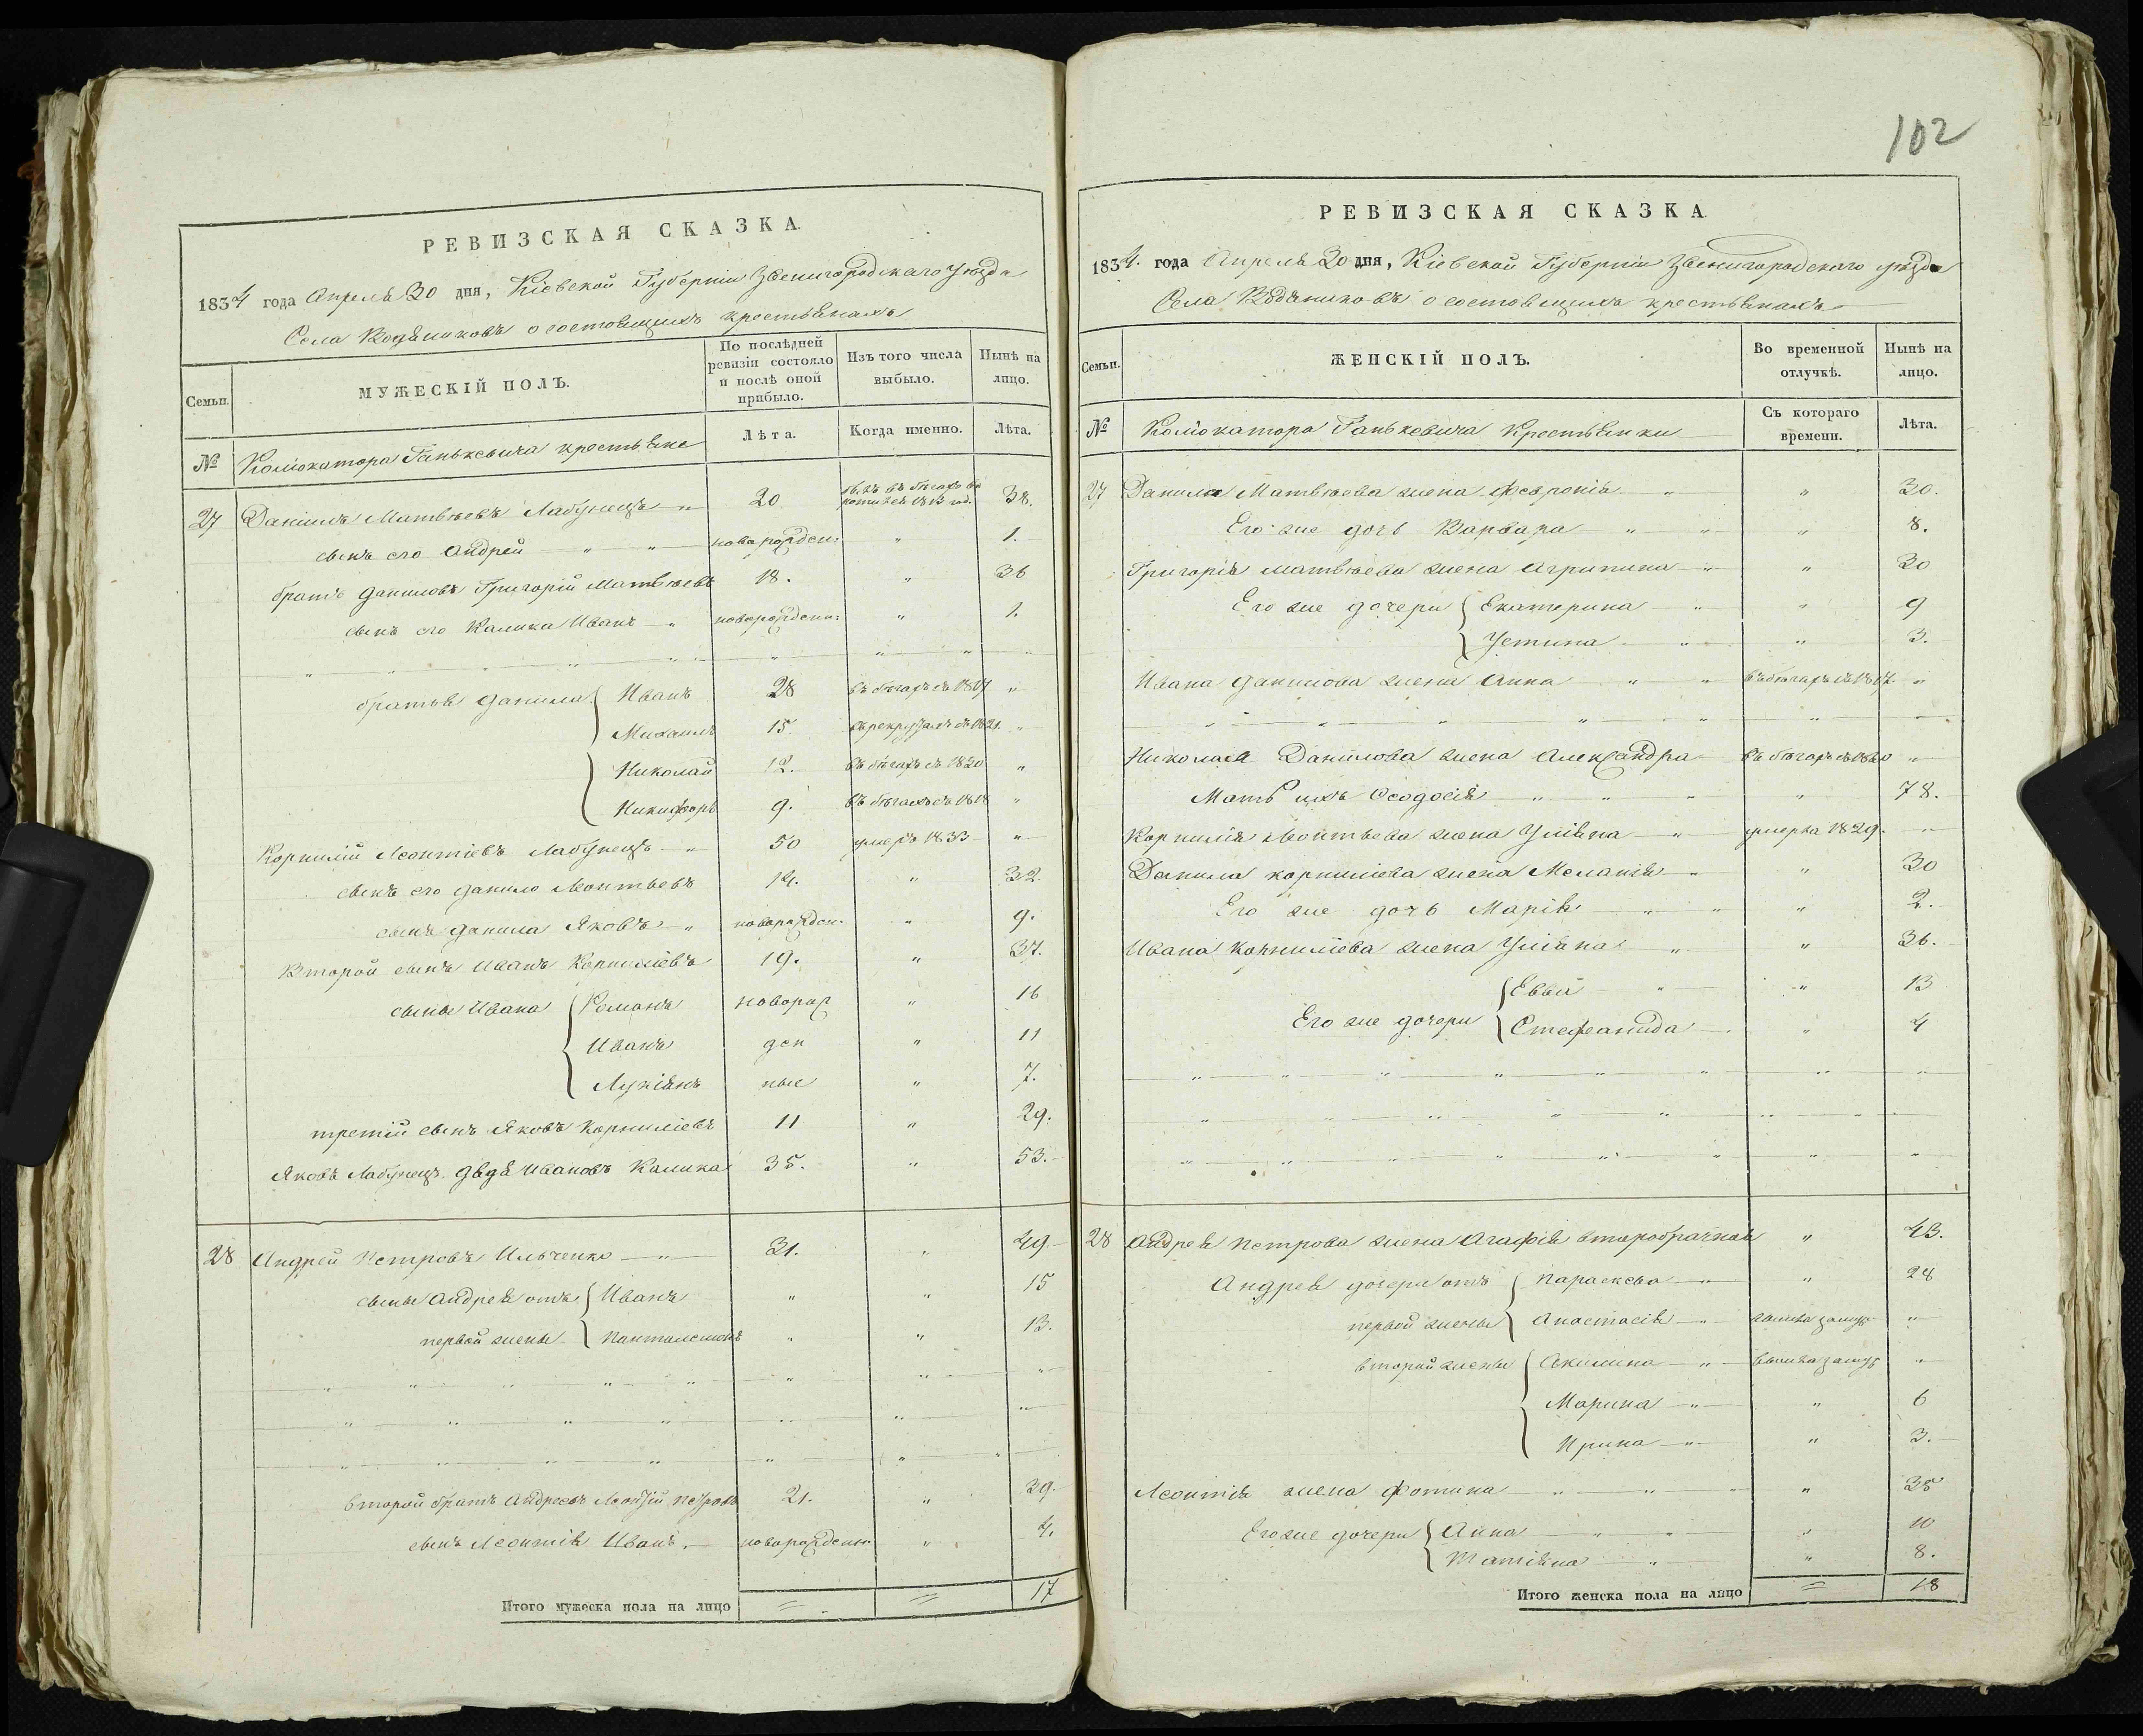 102
РЕВИЗСКАЯ СКАЗКА.
1834 года Апреля 30 дня, Кіевской Губерніи Звенигородскаго уѣзда
Села Водяниковъ о состоящихъ крестьянахъ
Семьи.
МУЖЕСКІЙ ПОЛЪ.
По послѣдней ревизіи состояло и послѣ оной прибыло.
Изъ того числа выбыло.
Нынѣ на лицо.
№
Коліокатора Ганькевича крестьяне
Лѣта.
Когда именно.
Лѣта.
27 Данилъ Матвѣевъ Лабунецъ 20 38.
сынъ его Андрей новорожден: " 1.
братъ Даниловъ Григорій Матвѣевъ 18. " 36
сынъ его Калика Иванъ новорожден: " 1.
братья Данила Иванъ 28 въ бѣгахъ съ 1817 "
Михаилъ 15. въ рекрутахъ съ 1821. "
Николай 12. въ бѣгахъ съ 1820 "
Никифоръ 9. въ бѣгахъ съ 1818 "
Корнилій Леонтіевъ Лабунецъ 50 умеръ 1833 "
сынъ его Данило Леонтьевъ 14. " 32
сынъ Данила Яковъ новорожден: " 9.
Второй сынъ Иванъ Корниліевъ 19. " 37.
сыны Ивана Романъ новорож " 16
Иванъ ден " 11
Лукіянъ ные " 7.
третій сынъ Яковъ Корниліевъ 11 " 29.
Яковъ Лабунец. Дядя Ивановъ Калика 35. " 53.
28 Андрей Петровъ Ильченко 31. " 49
сыны Андрея отъ Иванъ " " 15
первой жены Пантелеимонъ " " 13.
второй братъ Андреевъ Леонтій Петровъ 21. " 39.
сынъ Леонтія Иванъ. новорожден: " 4.
Итого мужеска пола на лицо 17
РЕВИЗСКАЯ СКАЗКА.
1834. года Апреля 30 дня, Кіевской Губерніи Звенигородскаго уѣзда
Села Водяниковъ о состоящихъ крестьянахъ
Семьи.
ЖЕНСКІЙ ПОЛЪ.
Во временной отлучкѣ.
Нынѣ на лицо.
№
Коліокатора Ганькевича Крестьянки
Съ котораго времени.
Лѣта.
27 Данила Матвѣева жена Февронія " 30.
Его же дочь Варвара " 8.
Григорія Матвѣева жена Агрипина " 30
Его же дочери Екатерина " 9
Устина " 3.
Ивана Данилова жена Анна въ бѣгахъ съ 1817. "
Николая Данилова жена Александра въ бѣгахъ съ 1820 "
Мать ихъ Феодосія " 78.
Корнилія Леонтьева жена Уліяна умерла 1829. "
Данила Корниліева жена Меланія " 30
Его же дочь Марія " 2.
Ивана Корниліева жена Уліана " 36.
Его же дочери Евва " 13
Стефанида " 4
28 Андрея Петрова жена Агафія второбрачная " 43.
Андрея дочери отъ Параскева " 28
первой жены Анастасія вышла замуж "
второй жены Акилина вышла замуж "
Марина " 6
Ирина " 3.
Леонтія жена Фотина " 35
Его же дочери Анна " 10
Татіяна " 8.
Итого женска пола на лицо 18